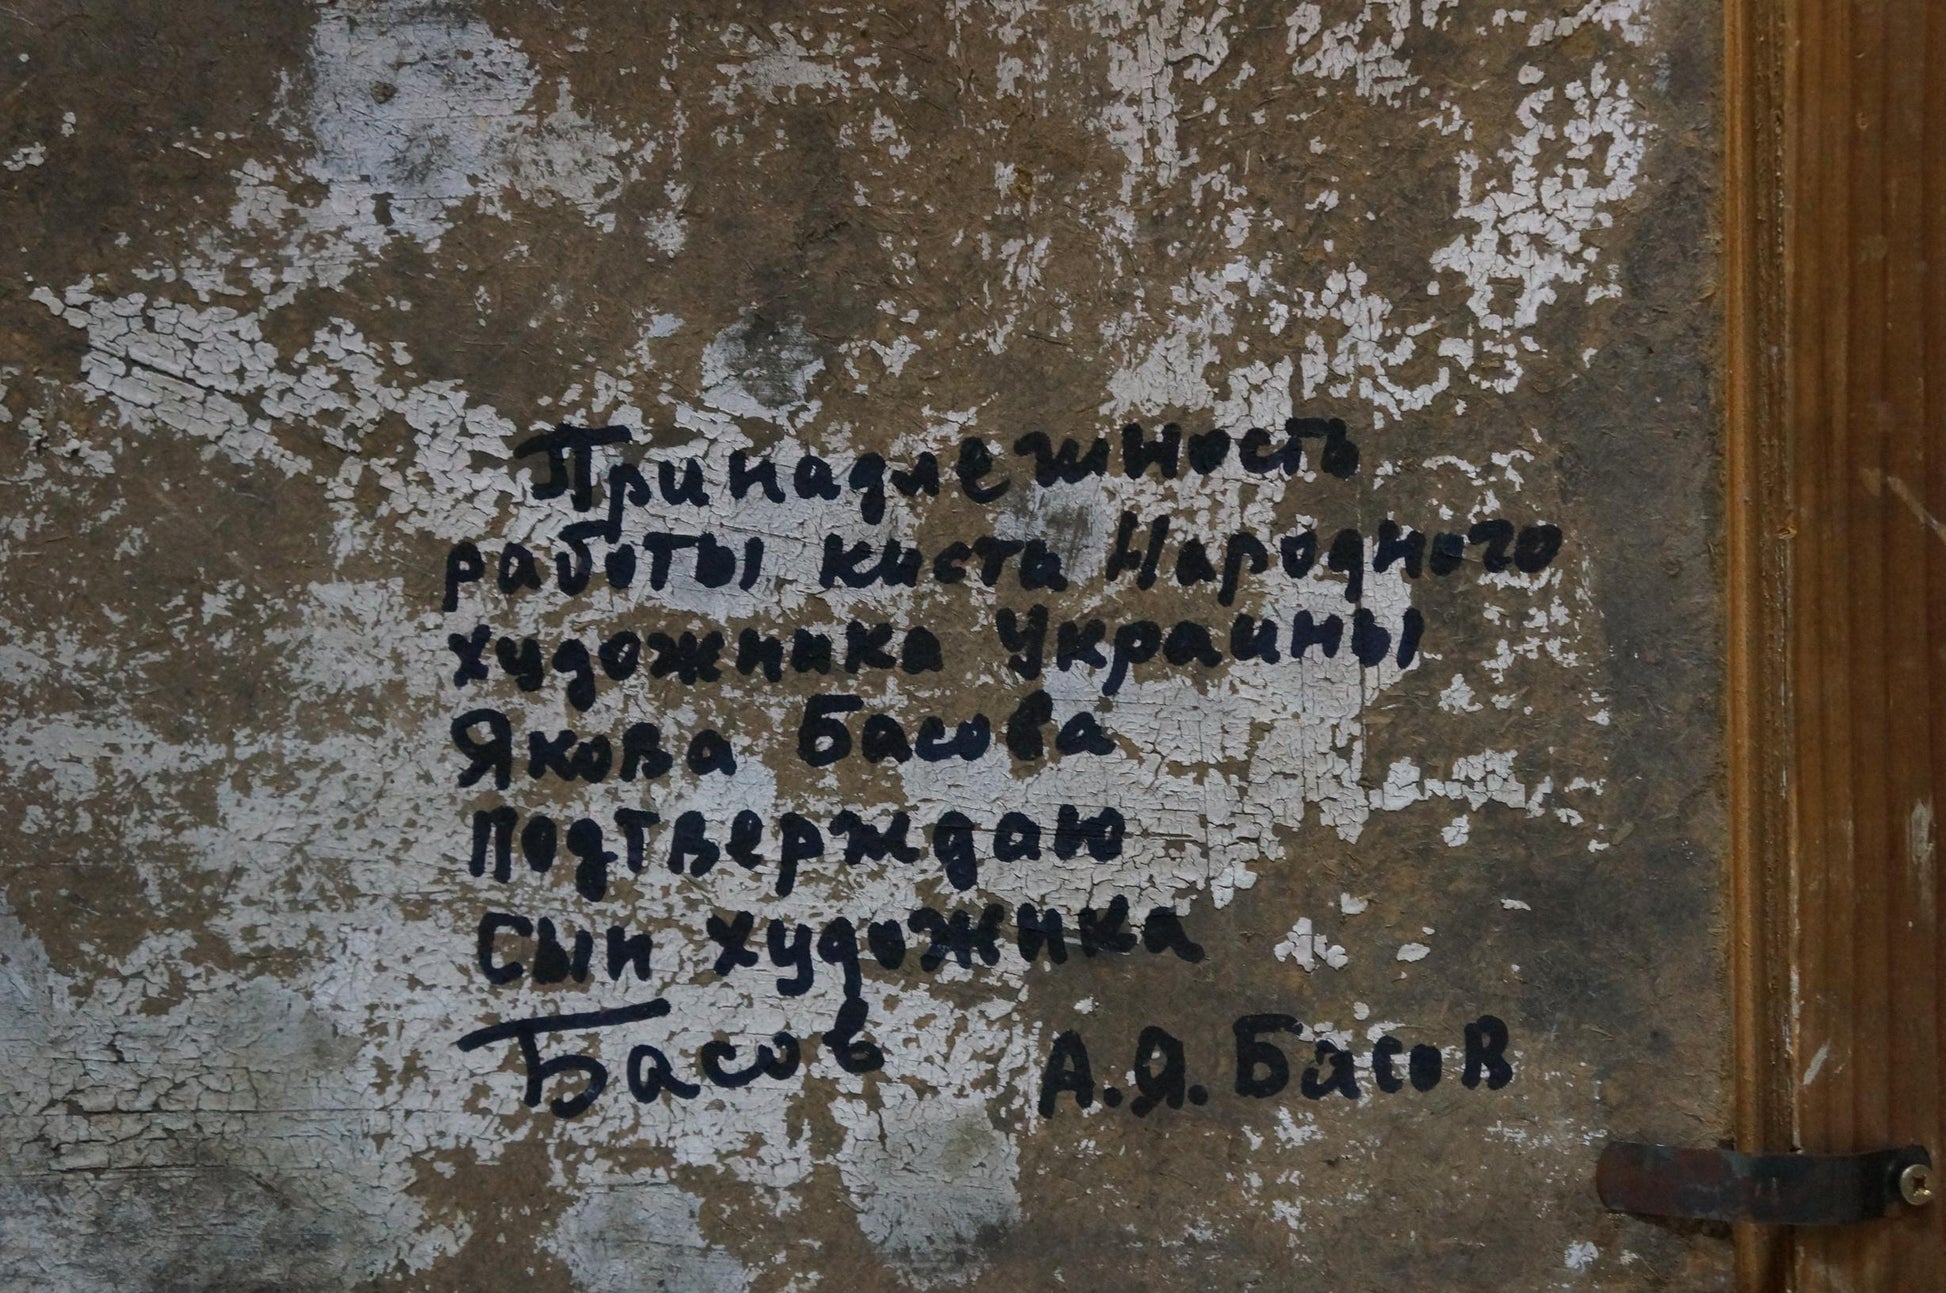 Принадлежность
работы кисти Народного
художника Украины
Якова Басова
подтверждаю
сын художника
Басов А.Я.Басов